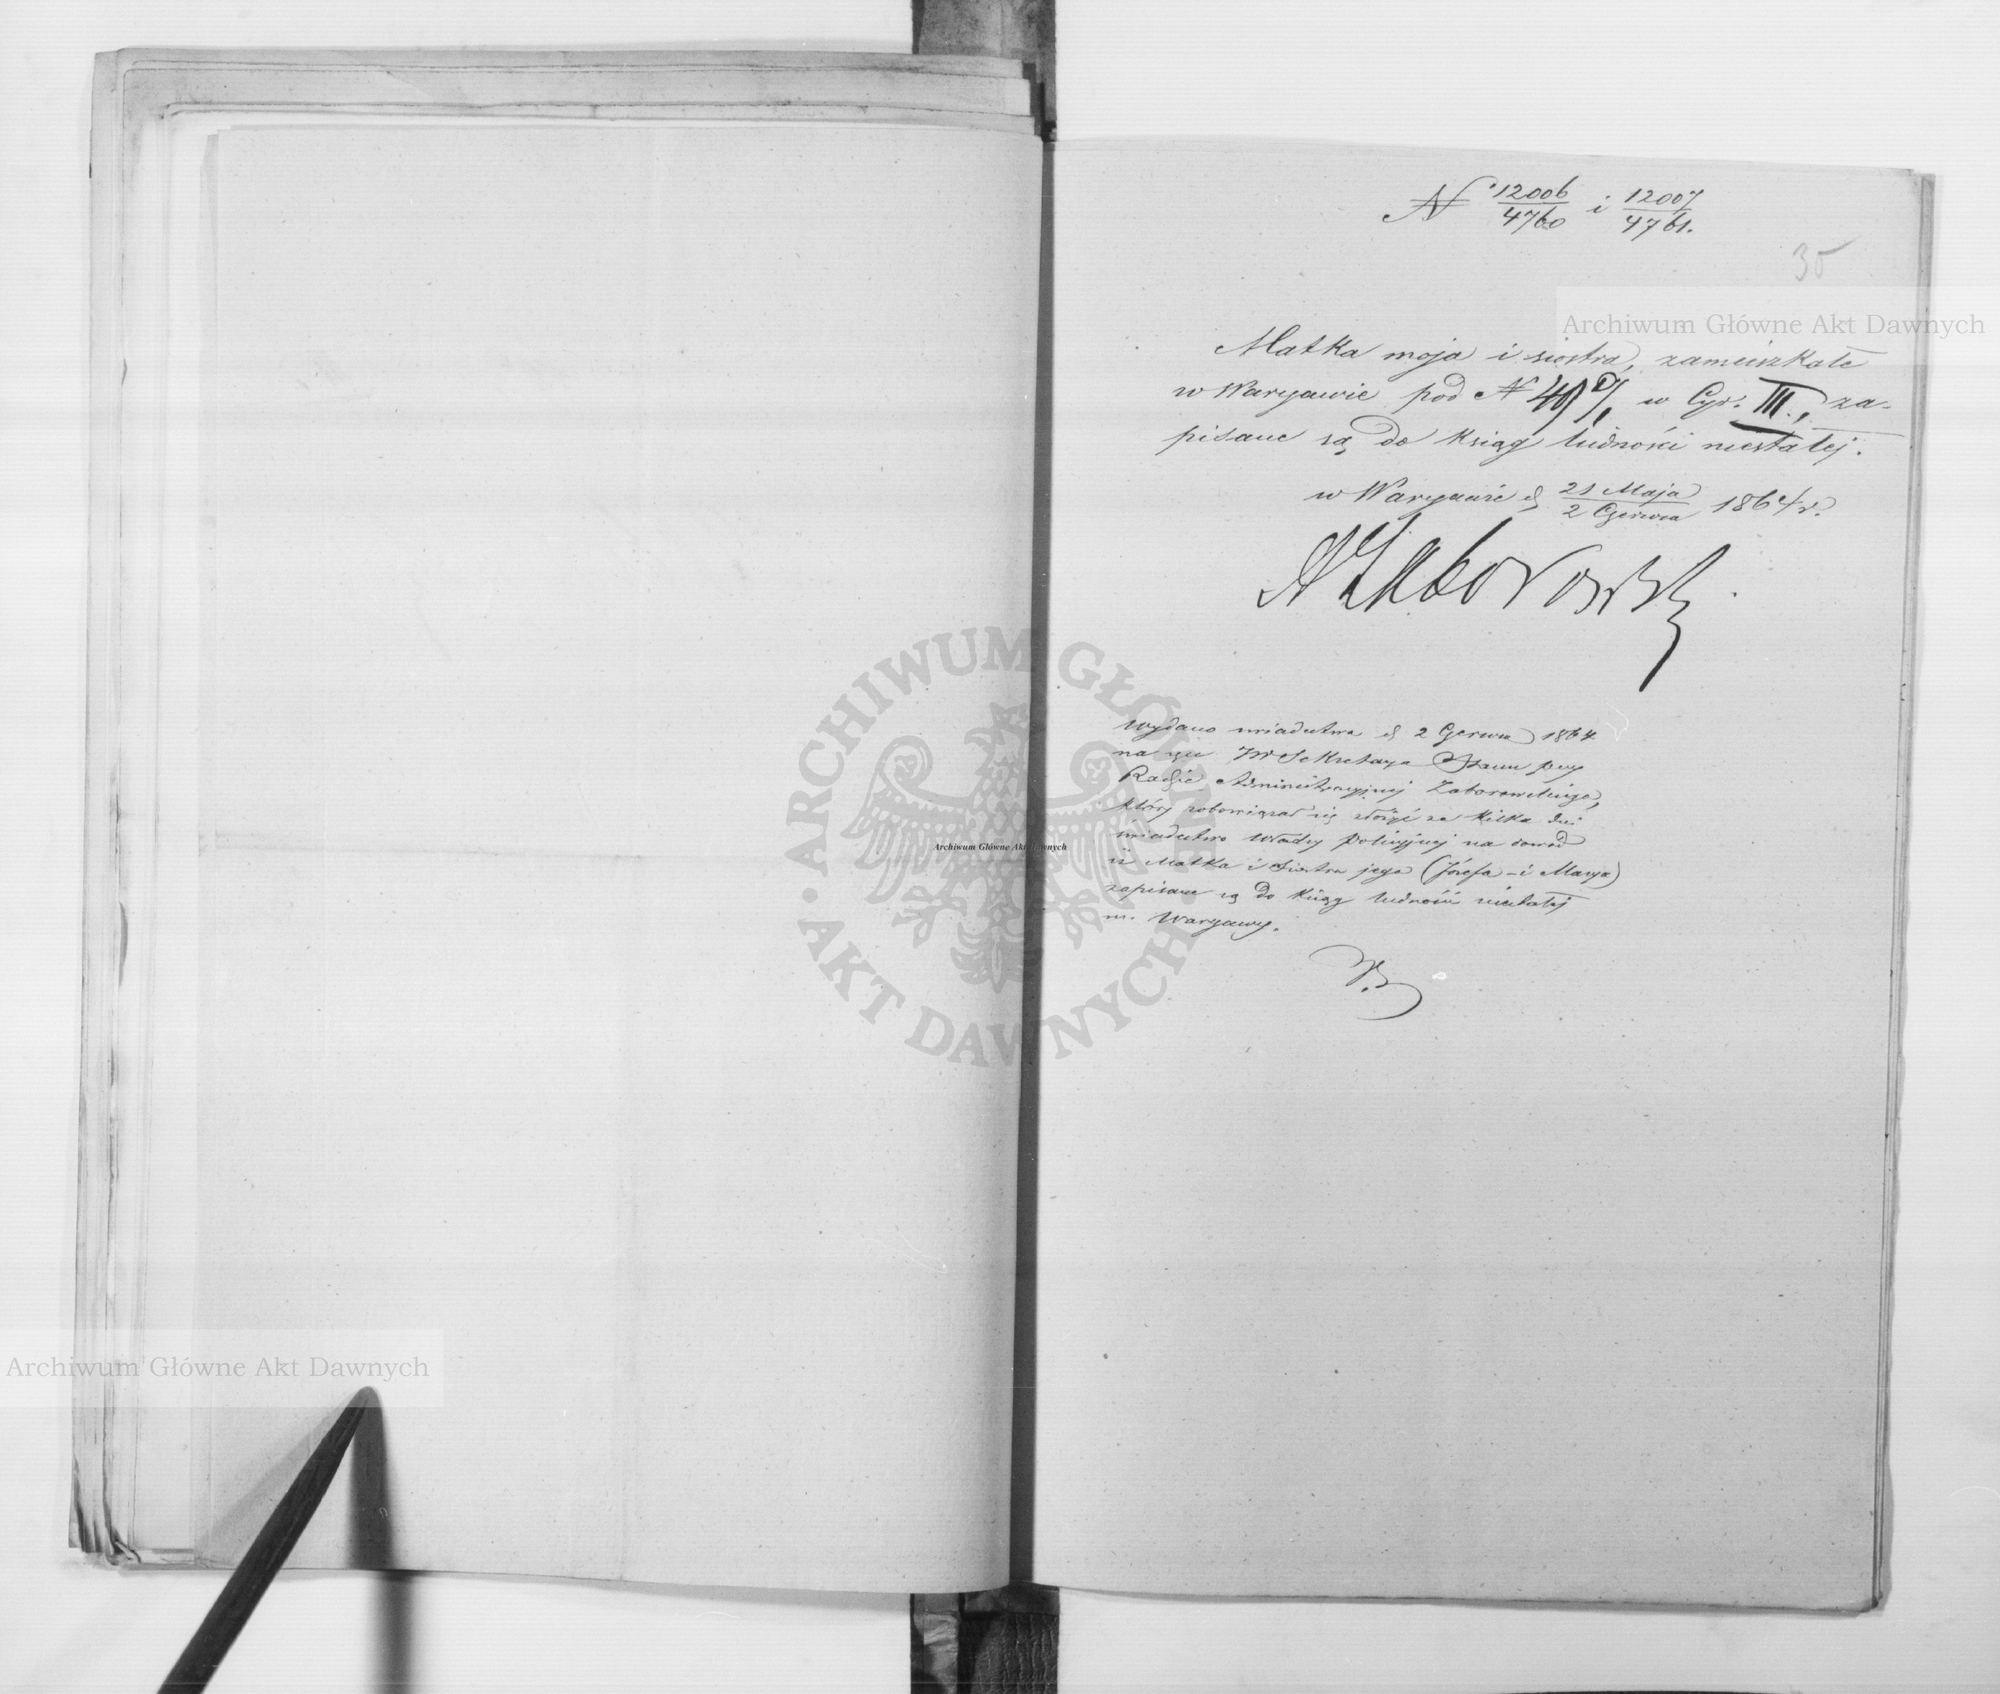 N 12006/4760 i 12007/4761.
35
Archiwum Główne Akt Dawnych
Matka moja i siostra, zamieszkałe
w Warszawie pod N 497, w Cyr. III., za-
pisane są do ksiąg ludności niestałej.
w Warszawie d. 21 Maja/2 Czerwca 1864 r.
AZaborowski
Wydano świadectwa d. 2 Czerwca 1864
na ręce JW Sekretarza Stanu przy
Radzie Administracyjnej Zaborowskiego,
który zobowiązał się złożyć za kilka dni
świadectwo Władzy policyjnej na dowód
iż Matka i Siostra jego (Józefa i Marya)
zapisane są do Ksiąg ludności niestałej
m. Warszawy.
ARCHIWUM GŁÓWNE AKT DAWNYCH
Archiwum Główne Akt Dawnych
Archiwum Główne Akt Dawnych